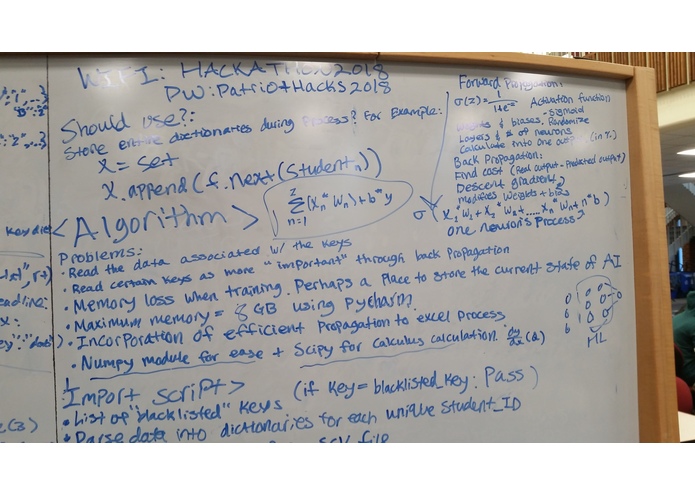 WIFI: HACKATHON2018
PW: Patriot Hacks 2018
Should use?:
Store entire dictionaries during Process? For Example:
X = set
X.append(f.next(Student_n))
<Algorithm>
Σ (X_n * W_n) + b * y
n=1
Forward Propagation:
σ(z) = 1 Activation function
- Sigmoid
& biases, Randomize
Layers & # of neurons
Calculate into one output (in %)
Back Propagation:
Find cost (Real output - Predicted output)
Descent gradient,
modifies weights + bias
σ(X_1 * W_1 + X_2 * W_2 + ..... X_n * W_n + n * b)
one neuron's process?
Problems:
• Read the data associated w/ the keys
• Read certain keys as more "important" through back Propagation
• Memory loss when training. Perhaps a Place to store the current state of AI
• Maximum memory = 8 GB using Pycharm?
• Incorporation of efficient Propagation to excel process
• Numpy module for ease + Scipy for calculus calculation. dy/dx (a)
ML
Import script> (if Key = blacklisted_key: Pass)
• List of "blacklisted" Keys
• Parse data into dictionaries for each unique Student_ID
file